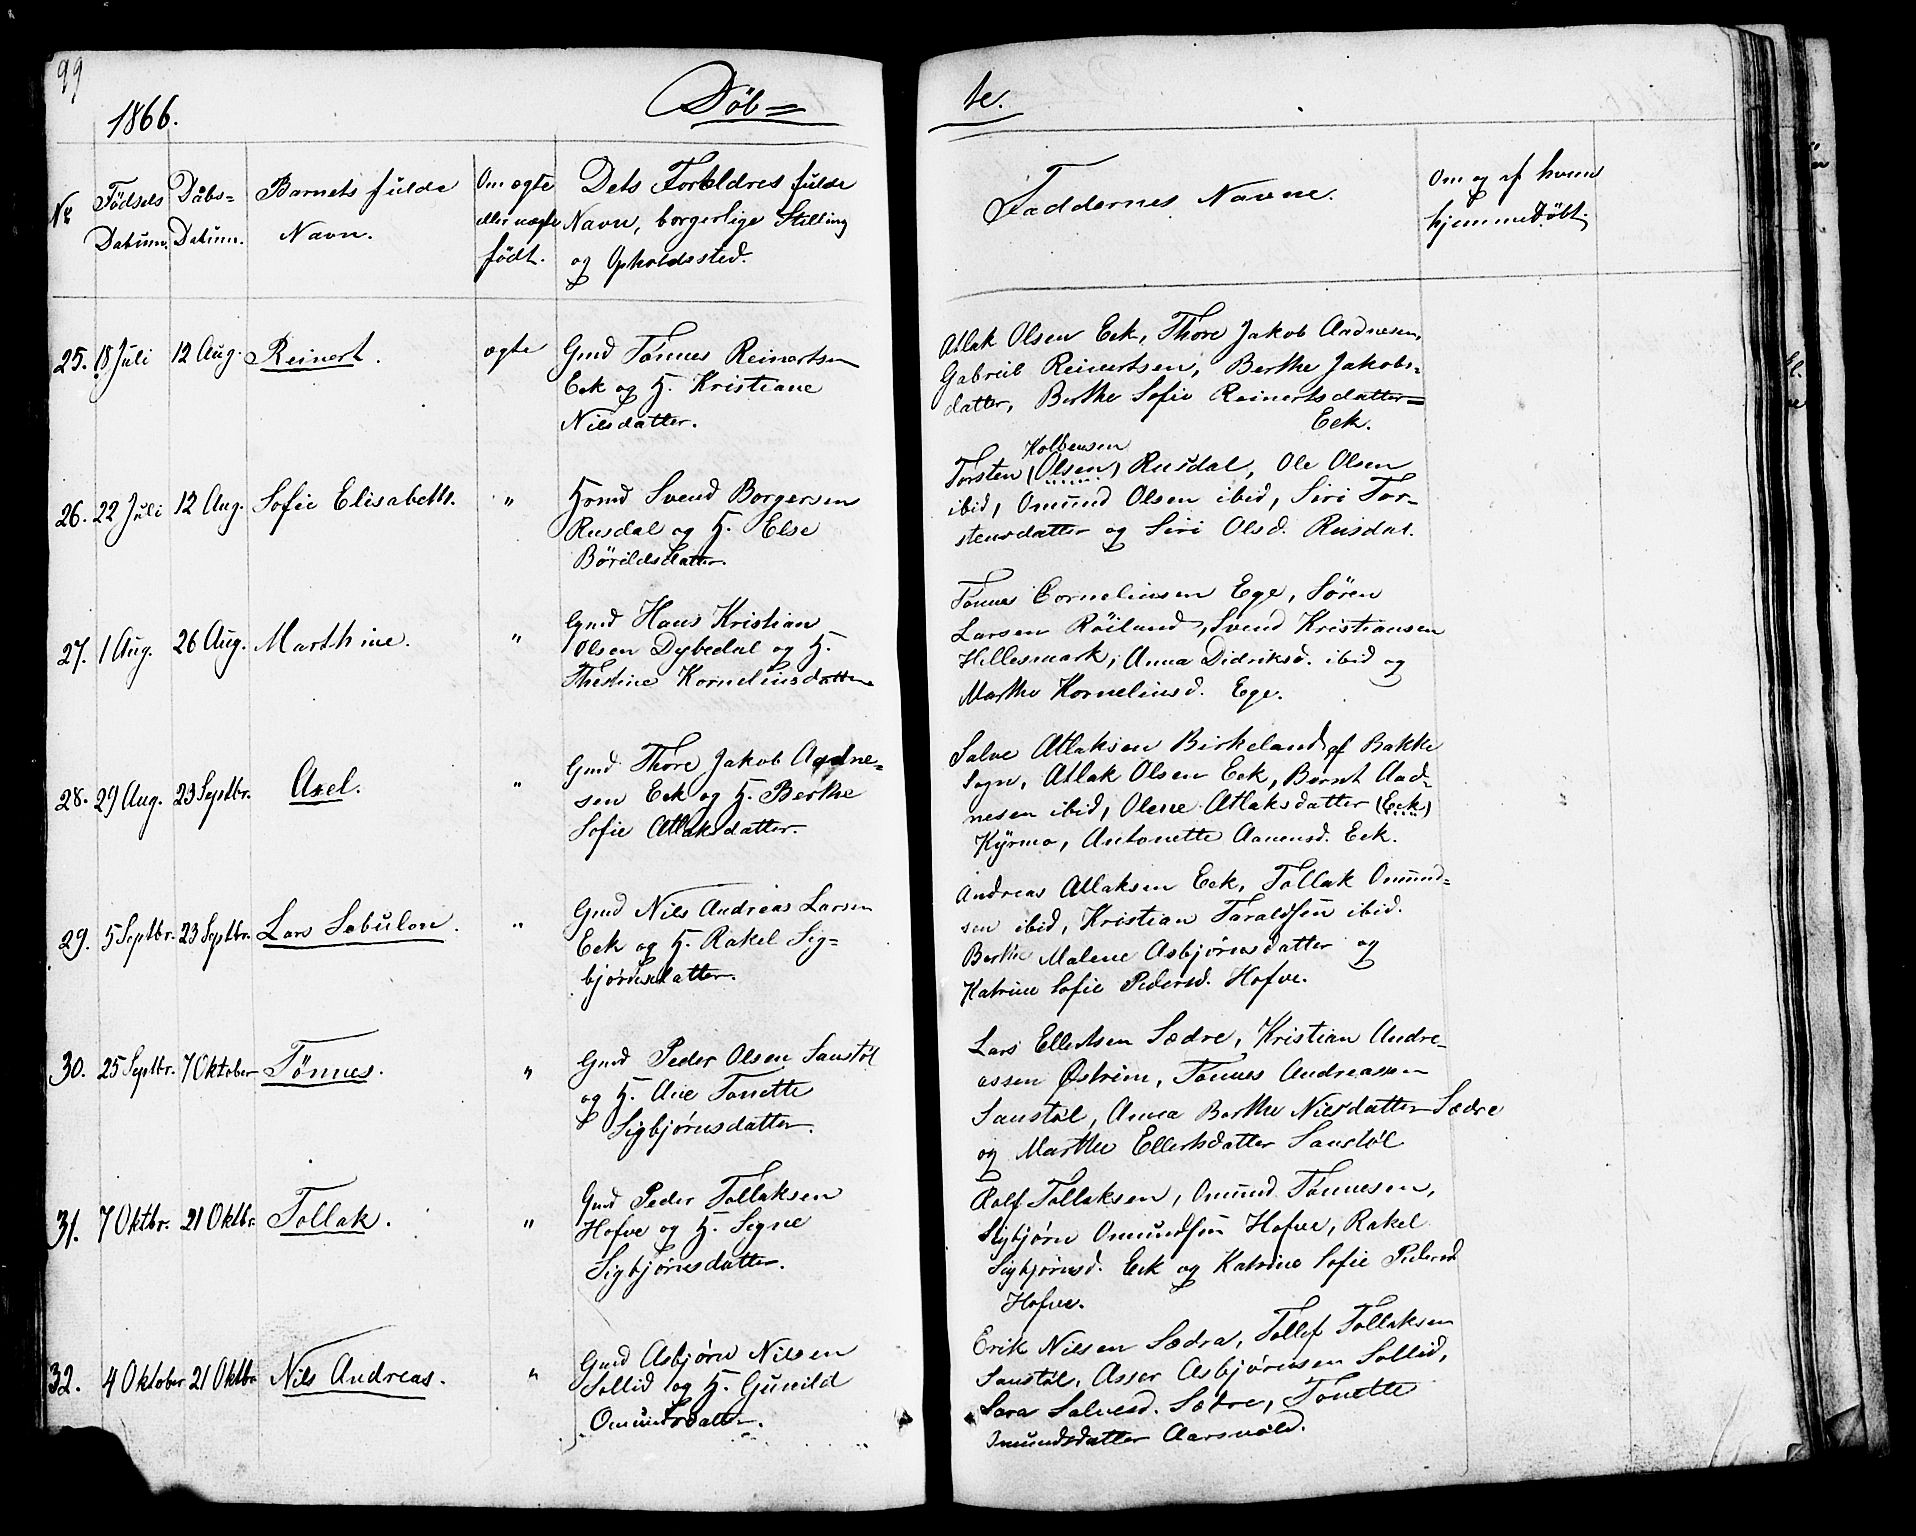 99
1866.
Døb=
te.
No
Födsels
Datum.
Dåbs=
Datum.
Barnets fulde
Navn.
Om ægte
eller uægte
födt.
Dets Forældres fulde
Navn, borgerlige Stilling
og Opholdssted.
Faddernes Navne.
Om og af hvem
hjemmedöbt.
25. 18 Juli 12 Aug. Reinert. ægte
Gmd Tönnes Reinertsen
Eek og H. Kristiane
Nilsdatter.
Atlak Olsen Eek, Thore Jakob Aadnesen,
Gabreil Reinertsen, Berthe Jakobs=
datter, Berthe Sofie Reinertsdatter=
Eek.
26. 22 Juli 12 Aug. Sofie Elisabeth. "
Hsmd Svend Borgersen
Rusdal og H. Else
Börildsdatter.
Kolbensen
Torsten (Olsen) Rusdal, Ole Olsen
ibid, Omund Olsen ibid, Siri Tor-
stensdatter og Siri Olsd. Rusdal.
27. 1 Aug. 26 Aug. Marthine. "
Gmd Hans Kristian
Olsen Dybedal og H.
Thestine Kornelinsdatter
Tönnes Cornelinsen Ege, Sören
Larsen Röiland, Svend Kristiansen
Hillesmark, Anna Didriksd. ibid og
Marthe Kornelinsd. Ege.
28. 29 Aug. 23 Septbr. Axel. "
Gmd Thore Jakob Aadne=
sen Eek og H. Berthe
Sofie Atlaksdatter.
Salve Atlaksen Birkeland af Bakke
Sogn, Atlak Olsen Eek, Bernt Aad-
nesen ibid, Olene Atlaksdatter (Eek)
Kyrmo, Antonette Aanensd. Eek.
29. 5 Septbr. 23 Septbr. Lars Sebulon. "
Gmd Nils Andreas Larsen
Eek og H. Rakel Sig=
bjørnsdatter.
Andreas Atlaksen Eek, Tollak Omund=
sen ibid, Kristian Taraldsen ibid.
Berthe Malene Asbjørnsdatter og
Katrine Sofie Pedersd. Hofve.
30. 25 Septbr. 7 Oktober Tönnes. "
Gmd Peder Olsen Sanstöl
og H. Ane Tonette
Sigbjørnsdatter.
Lars Ellertsen Sædre, Kristian Andre-
assen Østreim, Tönnes Andreassen
Sanstøl, Anna Berthe Nilsdatter Sædre
og Marthe Ellertsdatter Sanstøl
31. 7 Oktbr. 21 Oktbr. Tollak. "
Gmd Peder Tollaksen
Hofve og H. Signe
Sigbjørnsdatter.
Rolf Tollaksen, Omund Tönnesen,
Sigbjørn Omundsen Hofve, Rakel
Sigbjørnsd. Eek og Katrine Sofie Pedersd
Hofve.
32. 4 Oktober 21 Oktbr Nils Andreas. "
Gmd Asbjørn Nilsen
Sollid og H. Gunild
Omundsdatter.
Erik Nilsen Sædra, Tollef Tollaksen
Sanstøl, Asser Asbjørnsen Sollid,
Sara Salvesd. Sædre, Tonette
Omundsdatter Aarsvold.